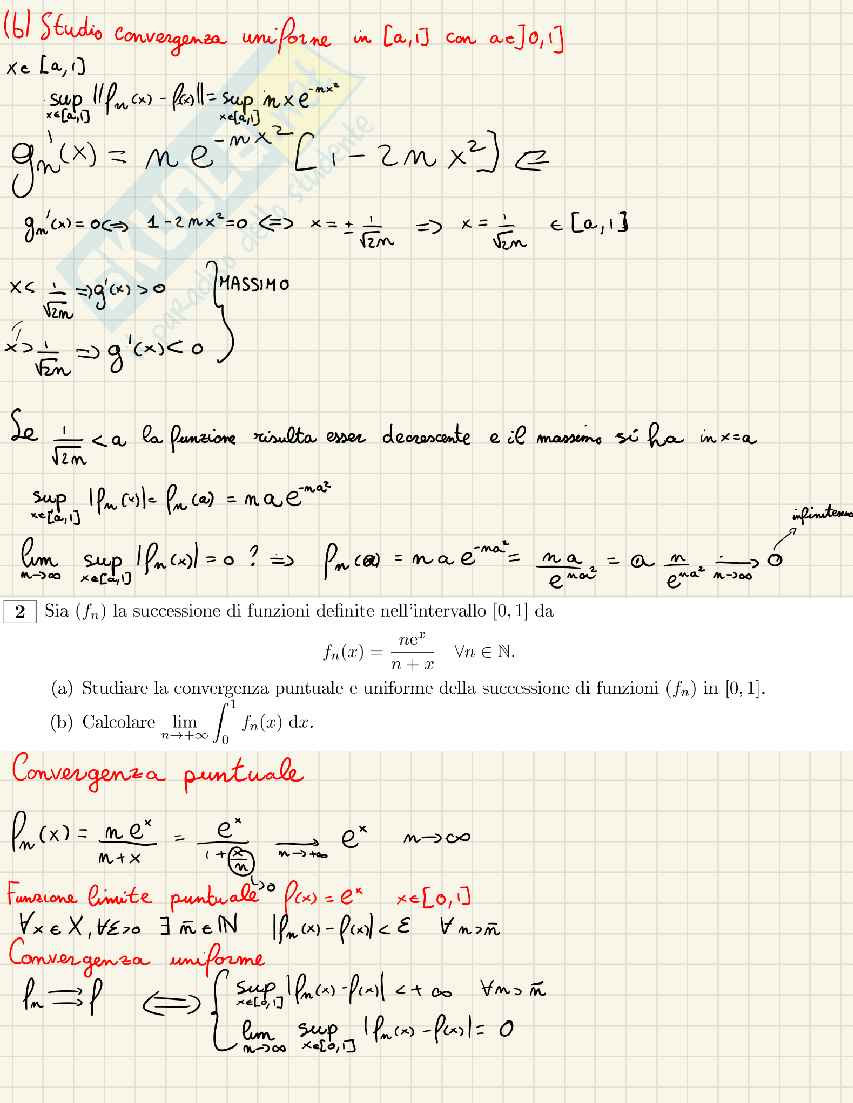 (b) Studio convergenza uniforme in [a,1] con a∈]0,1]
x∈[a,1]
sup_{x∈[a,1]} ||f_n(x) - f(x)|| = sup_{x∈[a,1]} n x e^{-nx²}
g_n'(x) = n e^{-nx²} [1 - 2n x²] ∈
g_n'(x) = 0 ⟺ 1 - 2nx² = 0 ⟺ x = ± 1/√2n ⟹ x = 1/√2n ∈ [a,1]
x < 1/√2n ⟹ g'(x) > 0 } MASSIMO
x > 1/√2n ⟹ g'(x) < 0
Se 1/√2n < a la funzione risulta esser decrescente e il massimo si ha in x=a
sup_{x∈[a,1]} |f_n(x)| = f_n(a) = n a e^{-na²}
infinitesimo
lim_{n→∞} sup_{x∈[a,1]} |f_n(x)| = 0 ? ⟹ f_n(a) = n a e^{-na²} = na/e^{na²} = a n/e^{na²} →_{n→∞} 0
2 Sia (f_n) la successione di funzioni definite nell'intervallo [0, 1] da
f_n(x) = ne^x/(n + x) ∀n ∈ ℕ.
(a) Studiare la convergenza puntuale e uniforme della successione di funzioni (f_n) in [0, 1].
(b) Calcolare lim_{n→+∞} ∫_0^1 f_n(x) dx.
Convergenza puntuale
f_n(x) = n e^x/(n+x) = e^x/(1 + x/n) →_{n→+∞} e^x n→∞
↳0
Funzione limite puntuale f(x) = e^x x∈[0,1]
∀x∈X, ∀ε>0 ∃ n̄∈ℕ |f_n(x) - f(x)| < ε ∀n>n̄
Convergenza uniforme
f_n ⇉ f ⟺ { sup_{x∈[0,1]} |f_n(x) - f(x)| < +∞ ∀n>n̄
lim_{n→∞} sup_{x∈[0,1]} |f_n(x) - f(x)| = 0
SKUOLA.net
paradiso dello studente